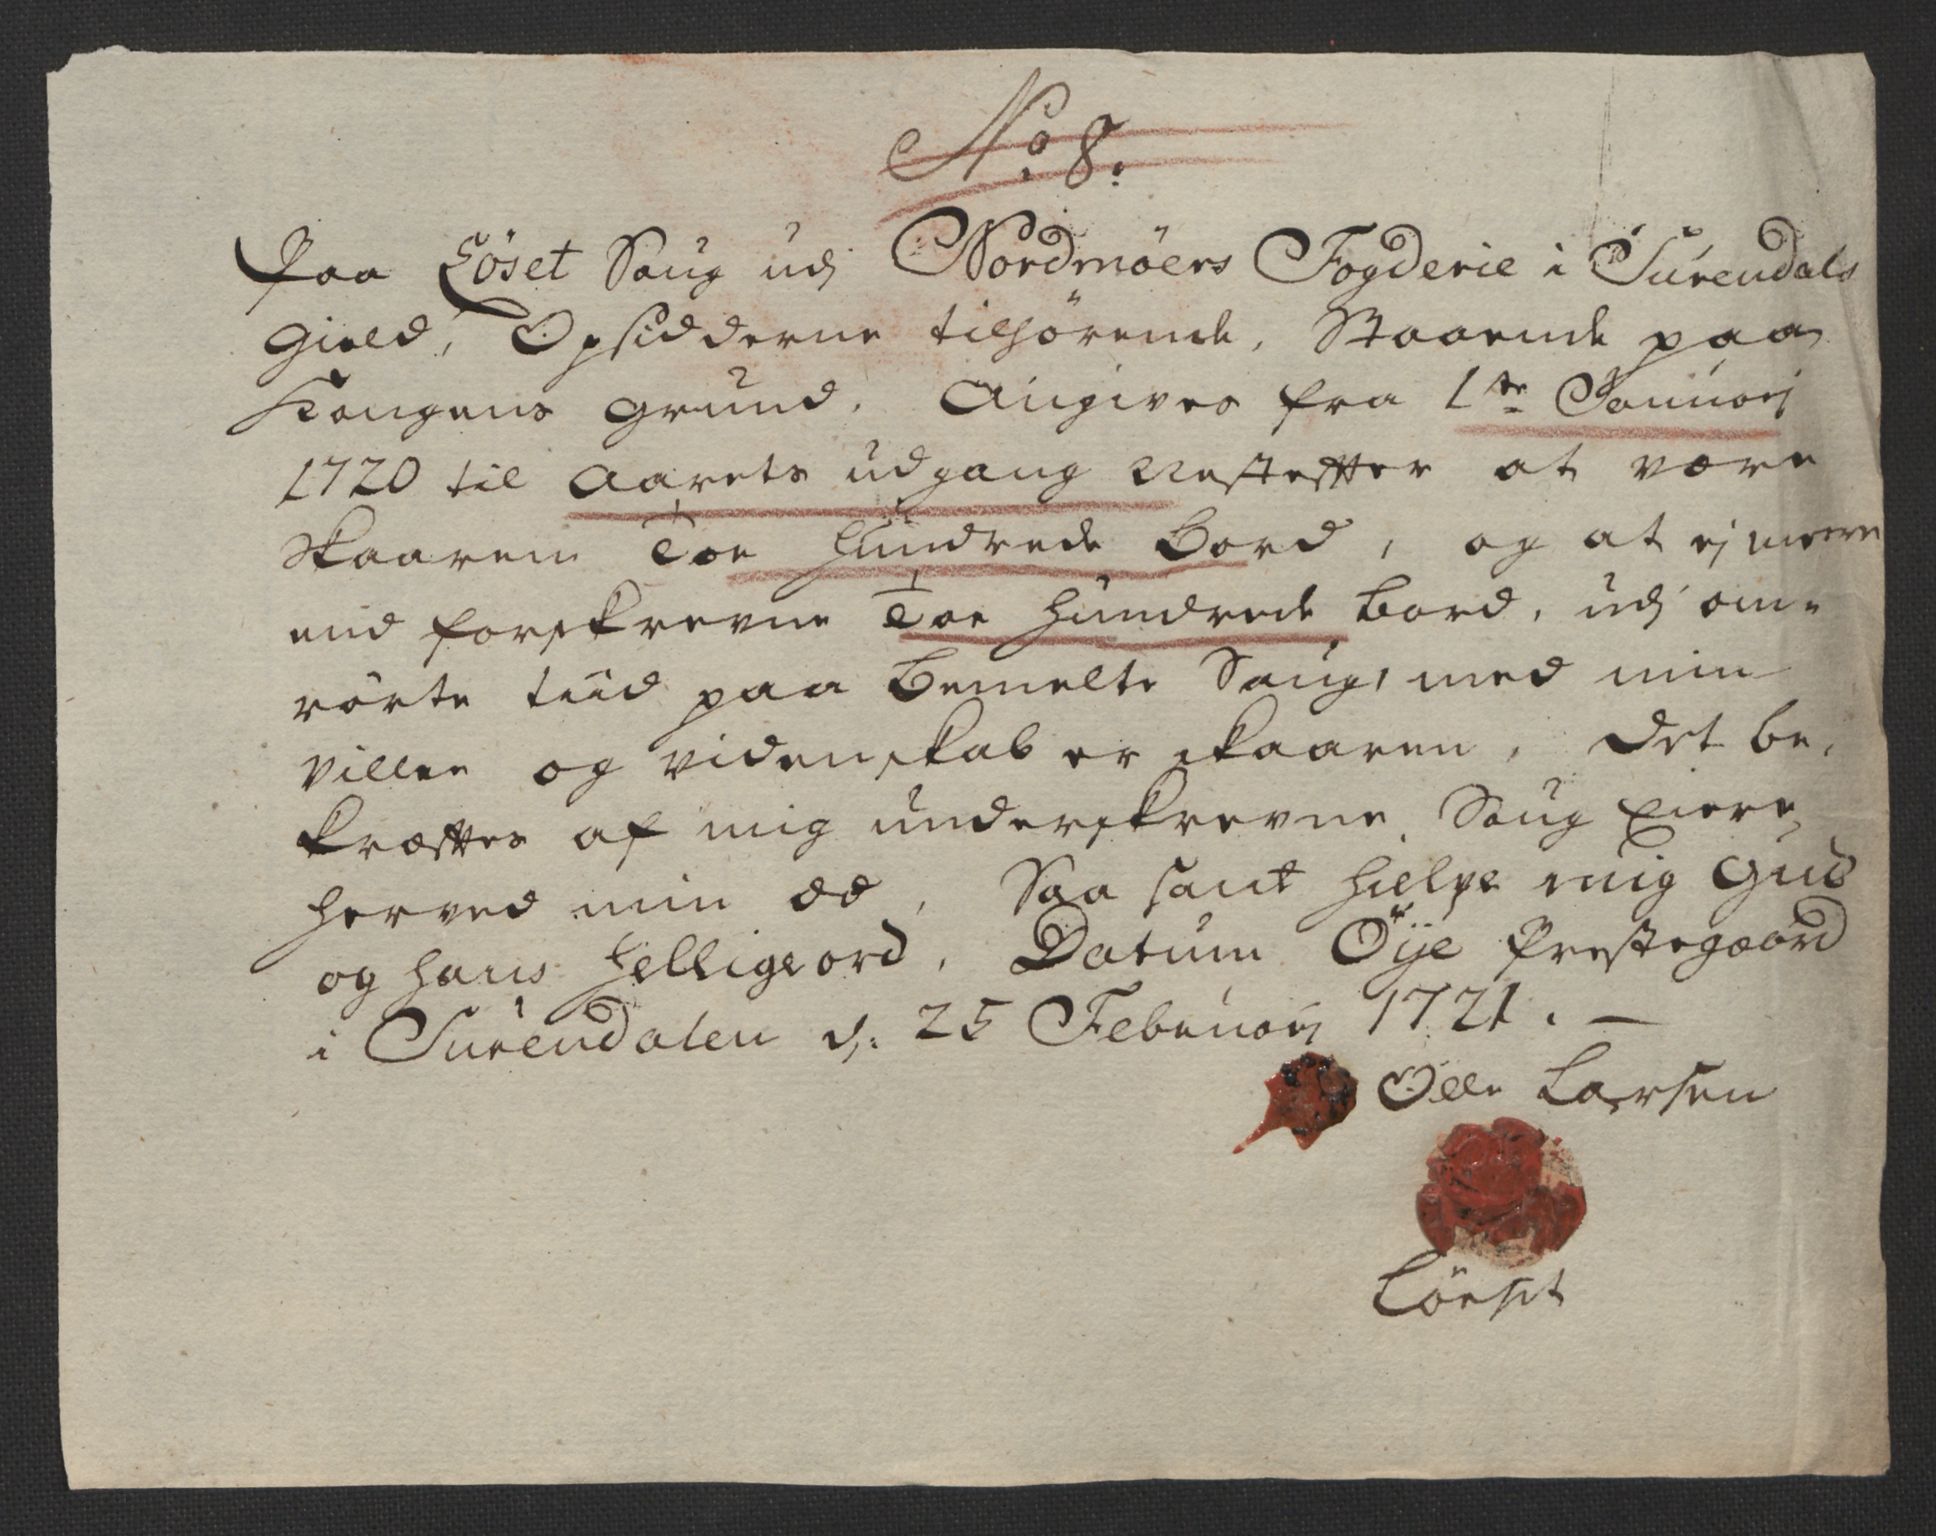 No 8.
Paa Löset Saug udj Nordmöers Fogderie i Surendals
Gield, Opsidderne tilhörende, Staaende paa
Kongens grund. Angives fra 1te Januarj
1720 til Aarets udgang Nestefter at være
Skaaren Toe Hundrede Bord, og at ej meere
end forskrevne Toe Hundrede Bord, udj om-
rörte tiid paa Bemelte Saug, med min
villie og videnskab er skaaren, Det be-
kræfftes af mig underskrevne Saug Eiere,
herved min æd, Saa sant hielpe mig Gud
og hans Hellige ord, Datum Öije Prestegaard
i Surendalen d: 25 Februarj 1721. —
Olle Larsen
Löeset